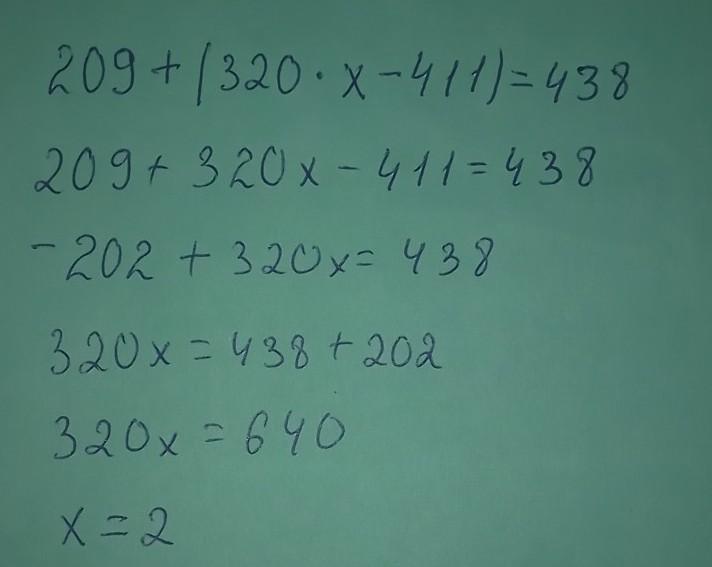 209 + (320 · x - 411) = 438
209 + 320x - 411 = 438
-202 + 320x = 438
320x = 438 + 202
320x = 640
x = 2